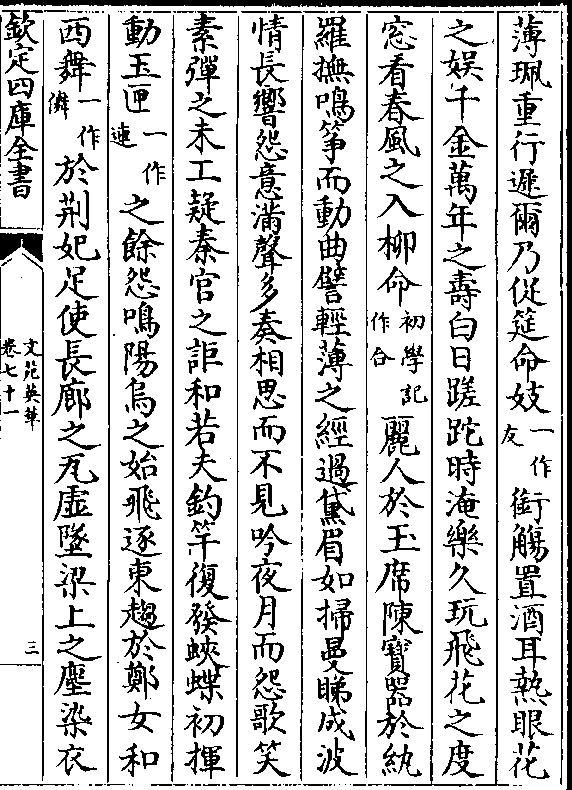 薄珮重行遲爾乃促筵命妓一作友銜觴置酒耳熱眼花
之娯千金萬年之壽白日蹉跎時淹樂久玩飛花之度
窓看春風之入柳命初學記作合麗人於玉席陳寶器於紈
羅撫鳴筝而動曲譬輕薄之經過黛眉如掃曼睇成波
情長響怨意滿聲多奏相思而不見吟夜月而怨歌笑
素彈之未工疑秦宫之詎和若夫釣竿復發蛺蝶初揮
動玉匣一作連之餘怨鳴陽烏之始飛逐東趨於鄭女和
西舞一作僲於荆妃足使長廊之瓦虚墜梁上之塵染衣
欽定四庫全書
文苑英華
卷七十一
三